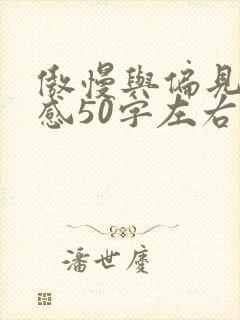 傲慢與偏見
感50字左右
潘世慶